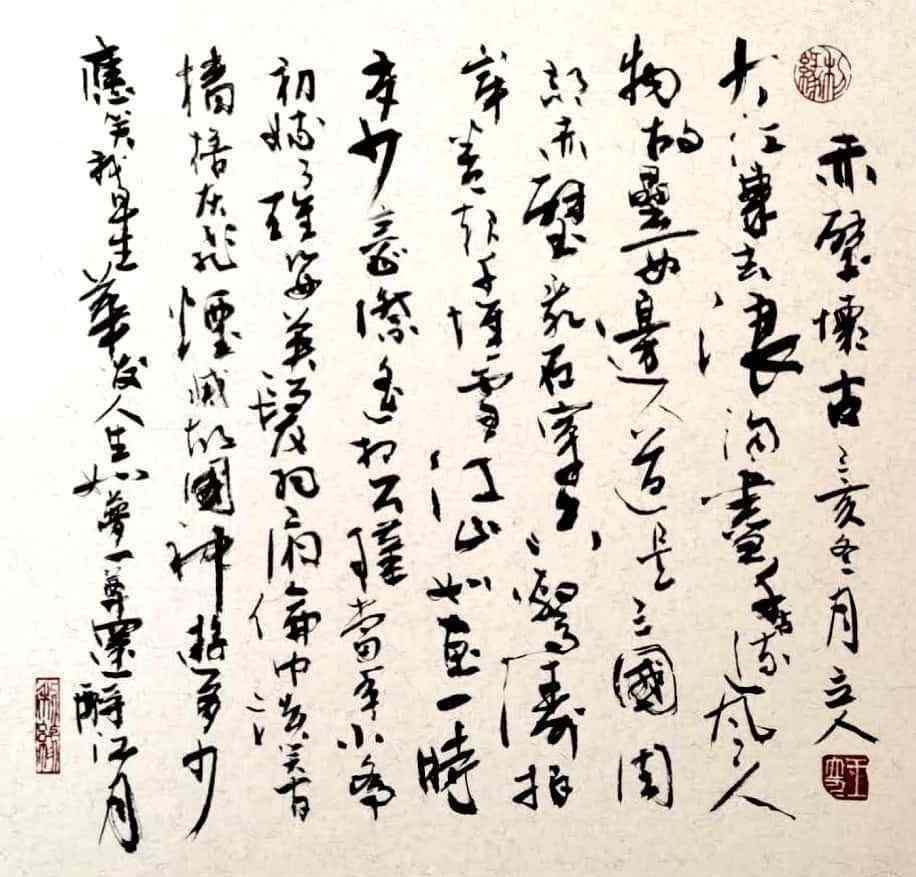 赤壁懷古 己亥冬月 立人
大江東去浪淘盡千古流風人
物故壘西邊人道是三國周
郎赤壁亂石穿空驚濤拍
岸卷起千堆雪江山如畫一時
多少豪傑遙想公瑾當年小喬
初嫁了雄姿英發羽扇綸巾談笑間
檣櫓灰飛煙滅故國神遊多少
應笑我早生華发人生如夢一尊還酹江月